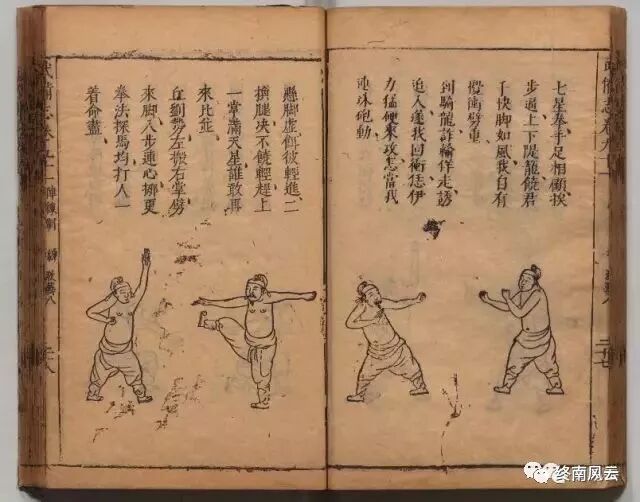 武備志卷九十一
七星拳手足相顧挨
步逼上下隄籠饒君
手快脚如風我自有
攪衝劈重
到騎龍詐輸佯走誘
追入遂我回衝恁伊
力猛硬來攻怎當我
連珠炮動
懸脚虛餌彼輕進二
換腿决不饒輕趕上
一掌滿天星誰敢再
來比並
丘劉勢左搬右掌劈
來脚入步連心挪更
拳法探馬均打人一
着命盡
武備志卷九十一 陣練制 練 教藝八
终南风云